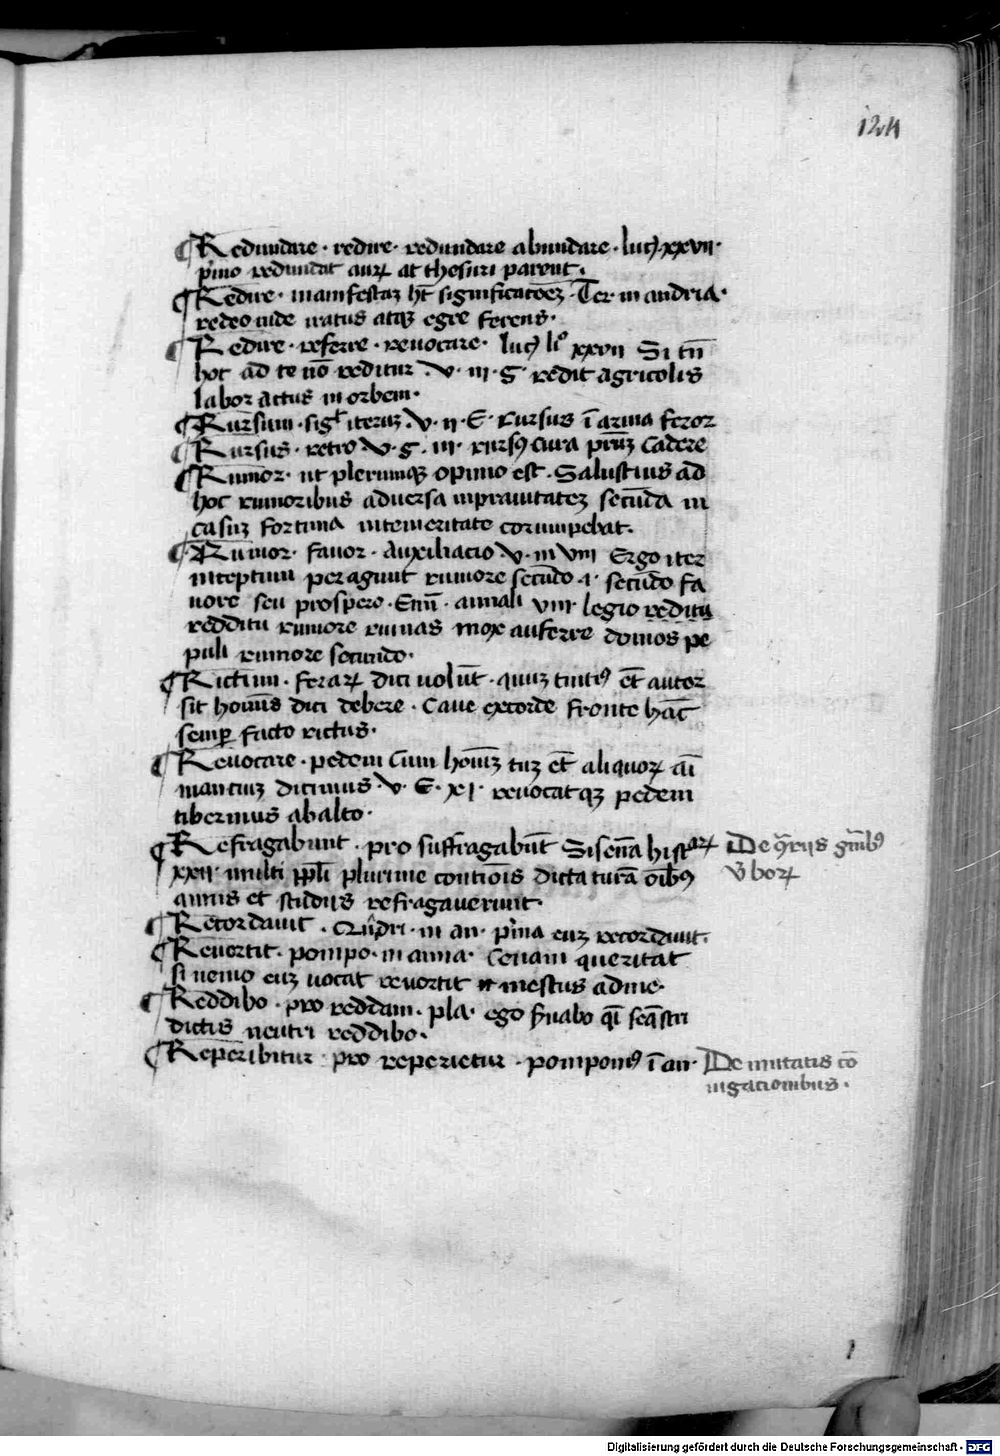 124
¶ Redundare · redire · redundare abundare · luc9 xxvii ·
pͥmo redundat auꝝ at thesuri parent ·
¶ Redire · manifestaꝫ hꝫ̄ significatōeꝫ · Ter in andria ·
redeo inde iratus atqꝫ egre ferens ·
¶ Redire · referre · reuocare · luc9 liº xxvii Si tn̄
hoc ad te nō reditur · v · iii · g · redit agricolis
labor actus in orbem ·
¶ Rursum · sigͭ iteruꝫ · v · ii · E · rursus ī arma feror
¶ Rursus · retro v · g · iii · rursꝰ cura pͥuꝫ cadere
¶ Rumor · ut plerumqꝫ opinio est · Salustius ad
hoc rumoribus aduersa inprauitateꝫ secūda in
casuꝫ fortuna intemeritate corrumpebat ·
¶ Rumor · fauor · auxiliacio v · in viii Ergo iter
inceptum peragunt rumore secūdo ·i· secūdo fa
uore seu prospero · Enn̄ · annali viii legio redditu
redditu rumore ruinas mox auferre domos po
puli rumore secundo ·
¶ Rictum · feraꝝ dici uolūt · quuꝫ tintiꝰ et autor
sit hoīuis dici debere · Caue excorde fronte hāc
semꝑ facto rictus ·
¶ Reuocare · pedem cum hoīuꝫ tuꝫ et aliquoꝝ aī
mantiuꝫ dicimus · v · E · xi · reuocatqꝫ pedem
tiberinus abalto ·
¶ Refragabunt · pro suffragabūt Sisenā histaꝝ
xxii · multi ppl̄i plurime contiōis dictaturā oībꝰ
annis et studiis refragauerunt ·
De qͣriis gn̄ibꝰ
v̄boꝝ
¶ Recordauit · Qūdri · in an · pͥma euꝫ recordauit ·
¶ Reuortit · pompo · in anna · Cenam queritat
si nemo euꝫ uocat reuortit mestus adme ·
¶ Reddibo · pro reddam · pla · ego s̄uabo qī seq̄stri
dictis neutri reddibo ·
¶ Reperibitur · pro reperietur · pomponiꝰ ī an ·
De mutatis cō
iugacionibus ·
Digitalisierung gefördert durch die Deutsche Forschungsgemeinschaft - DFG